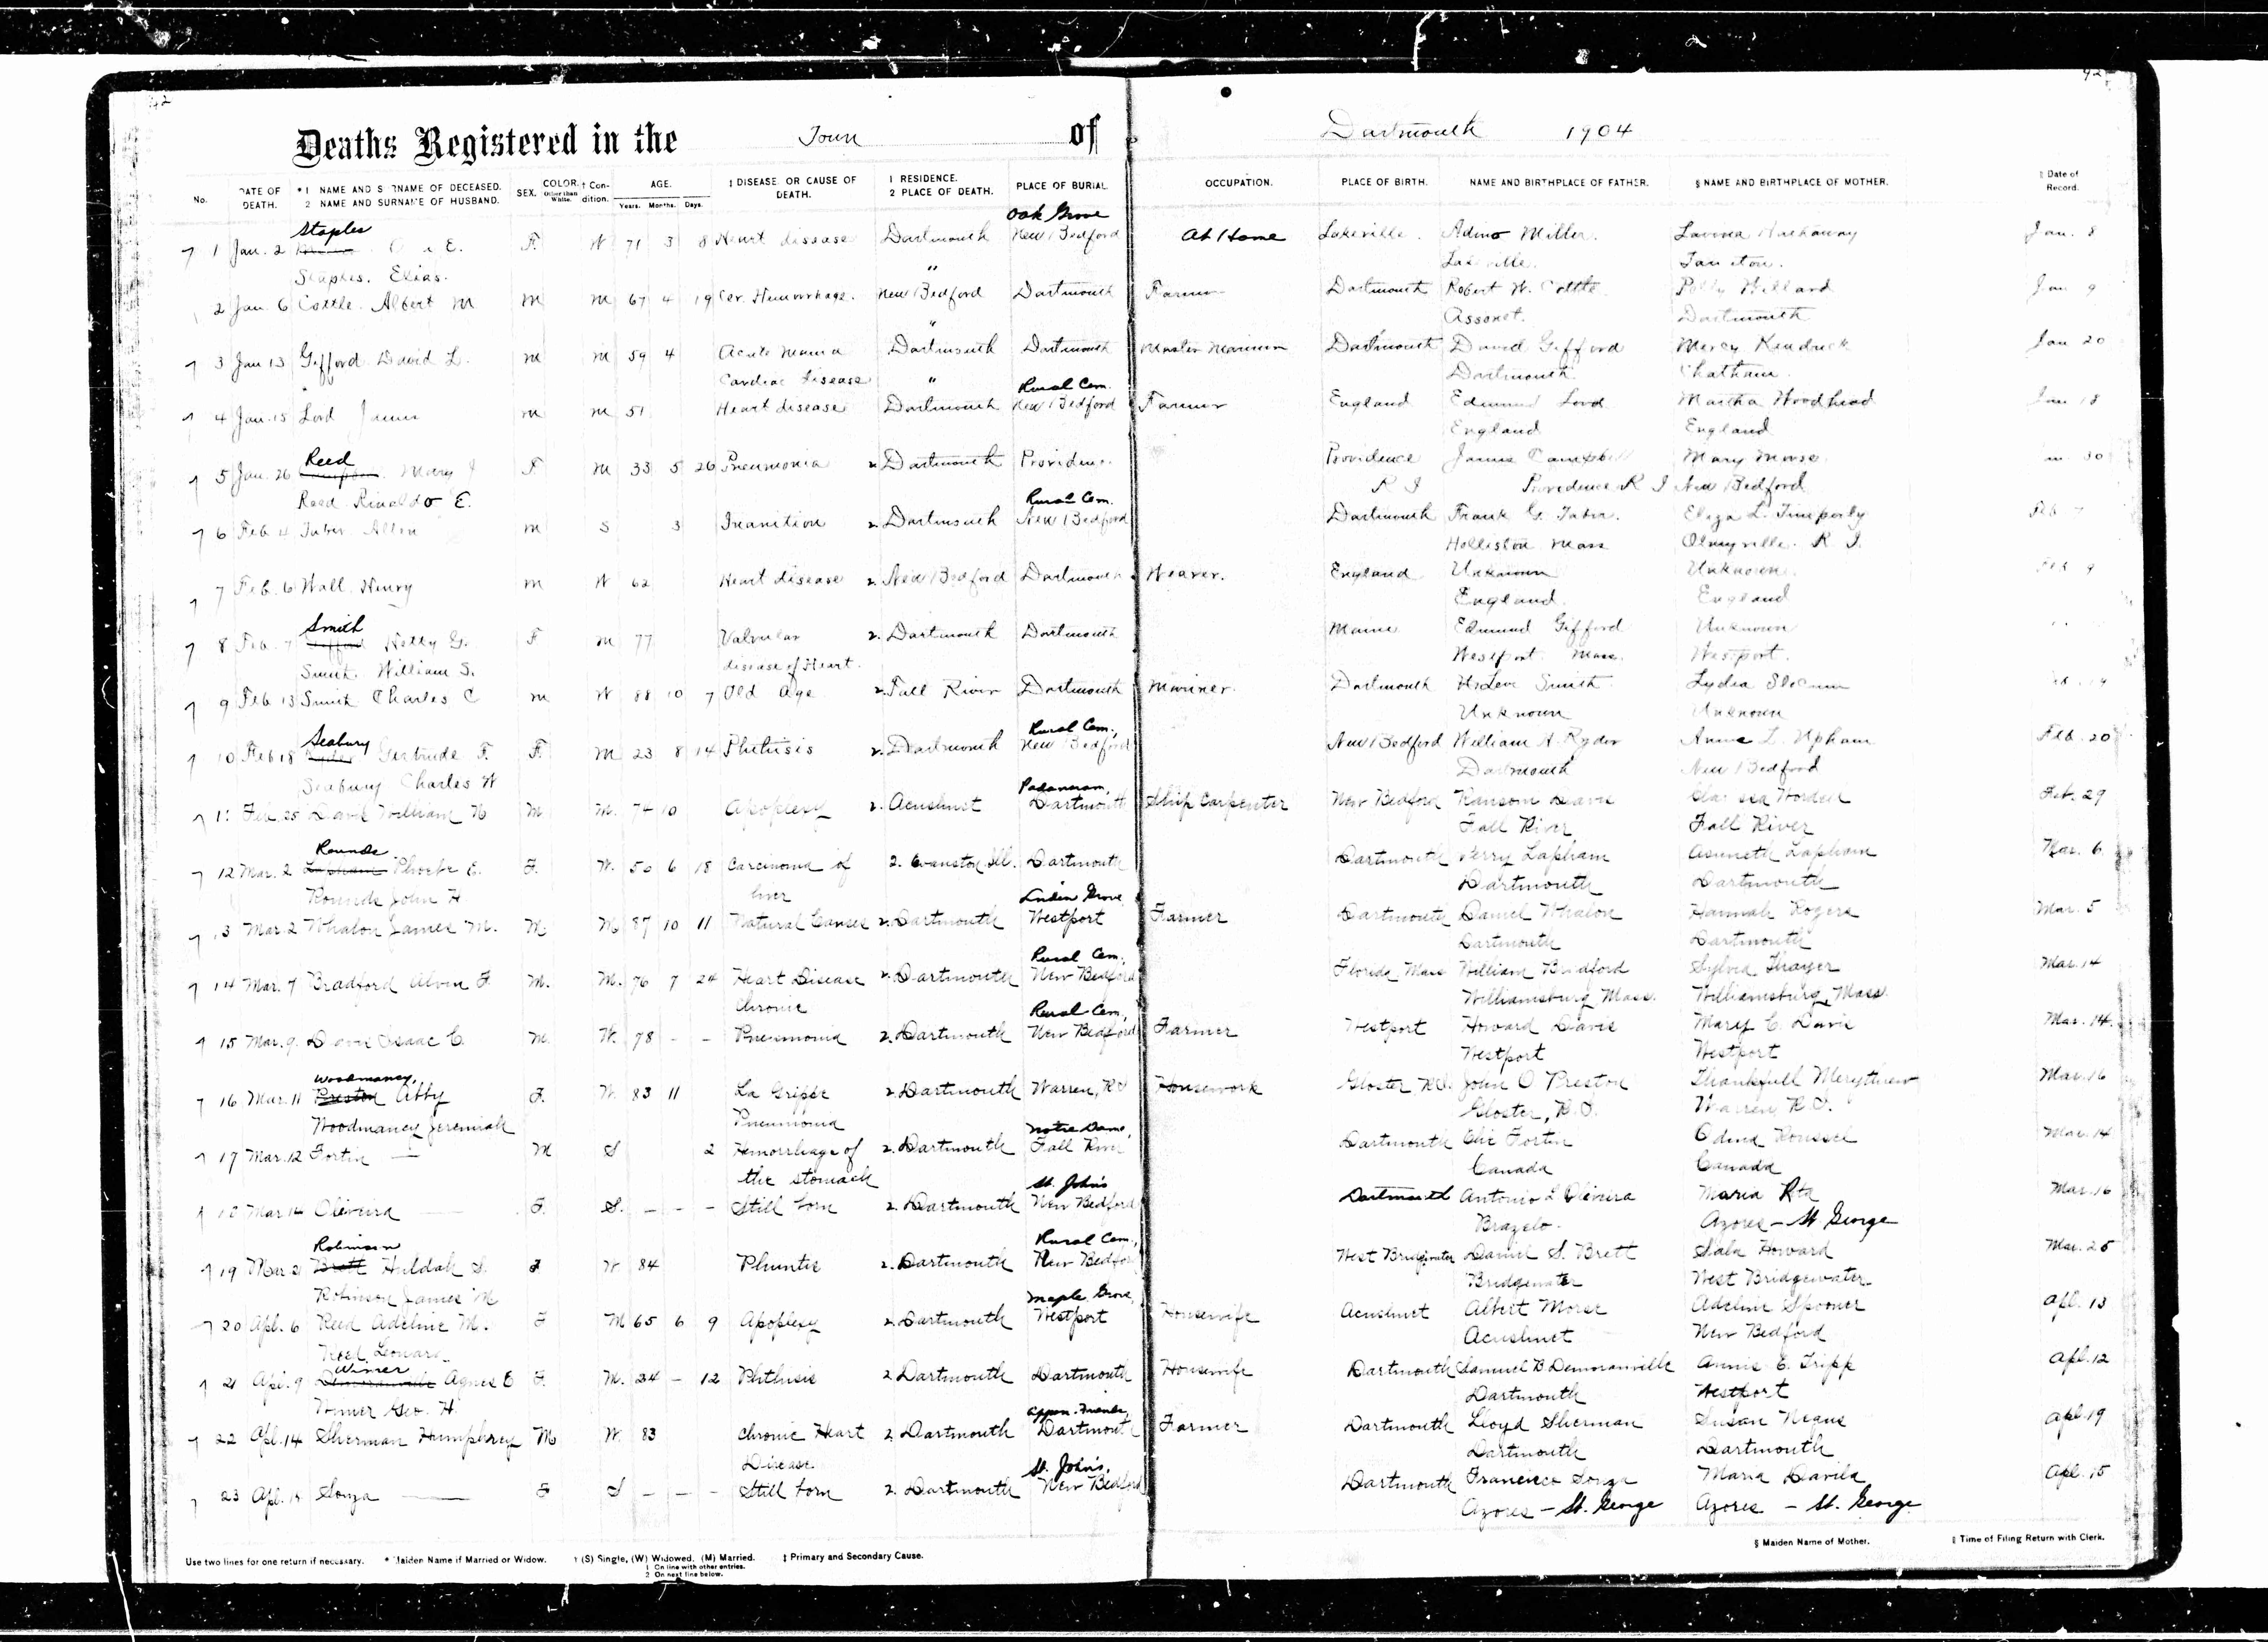 42
92
Deaths Registered in the Town of Dartmouth 1904
No. DATE OF DEATH. *1 NAME AND SURNAME OF DECEASED. 2 NAME AND SURNAME OF HUSBAND. SEX. COLOR. Other than White. † Condition. AGE. Years. Months. Days. ‡ DISEASE OR CAUSE OF DEATH. 1 RESIDENCE. 2 PLACE OF DEATH. PLACE OF BURIAL. OCCUPATION. PLACE OF BIRTH. NAME AND BIRTHPLACE OF FATHER. § NAME AND BIRTHPLACE OF MOTHER. ‖ Date of Record.
Staples Oak Grove
1 Jan. 2 E. F. W 71 3 8 Heart disease Dartmouth New Bedford At Home Lakeville. Miller. Lavona Hathaway Jan. 8
Staples. Elias. " Lakeville. Taunton.
2 Jan. 6 Cottle. Albert M m m 67 4 19 Cer. Hemorrhage. New Bedford Dartmouth Farmer Dartmouth Robert W. Cottle Polly Willard Jan 9
" Assonet. Dartmouth
3 Jan 13 Gifford David L. m m 59 4 Acute Mania Dartmouth Dartmouth Master Mariner Dartmouth David Gifford Mercy Kendrick Jan 20
Cardiac disease " Rural Cem. Dartmouth Chatham.
4 Jan. 15 Lord James m m 51 Heart disease Dartmouth New Bedford Farmer England Edmund Lord Martha Woodhead Jan 18
England England
Reed
5 Jan. 26 Mary J F m 33 5 26 Pneumonia 2. Dartmouth Providence Providence James Campbell Mary Morse 30
Reed Rinaldo E. Rural Cem. R I Providence R I New Bedford
6 Feb 4 Taber Allen m S 3 Inanition 2. Dartmouth New Bedford Dartmouth Frank G. Taber. Eliza L. Timperly Feb 7
Holliston Mass Olneyville. R I.
7 Feb. 6 Wall Henry m W 62 Heart disease 2. New Bedford Dartmouth Weaver. England Unknown Unknown Feb 9
England. England
Smith
8 Feb. 7 Gifford Hetty G. F m 77 Valvular 2. Dartmouth Dartmouth Maine Edmund Gifford Unknown
Smith. William S. disease of Heart. Westport Mass. Westport.
9 Feb 13 Smith Charles C m W 88 10 7 Old Age 2. Fall River Dartmouth Mariner. Dartmouth Smith Lydia Slocum
Unknown Unknown
Seabury Rural Cem.
10 Feb 18 Gertrude F. F. M 23 8 14 Phthisis 2. Dartmouth New Bedford New Bedford William A. Ryder Annie L. Upham Feb. 20
Seabury Charles W Padanaram, Dartmouth New Bedford
11 Feb. 25 Davis William H M M. 74 10 Apoplexy 2. Acushnet Dartmouth Ship Carpenter New Bedford Ransom Davis Worden Feb. 29
Fall River Fall River
Rounds
12 Mar. 2 Lapham Phoebe E. F. W. 50 6 18 Carcinoma of 2. Evanston Ill. Dartmouth Dartmouth Perry Lapham Asenath Lapham Mar. 6
Rounds John H liver Linden Grove, Dartmouth Dartmouth
13 Mar. 2 Whalon James M. M. M 87 10 11 Natural Causes 2. Dartmouth Westport Farmer Dartmouth Daniel Whalon Hannah Rogers Mar. 5
Dartmouth Dartmouth
Rural Cem.
14 Mar. 7 Bradford Alvin F. M. M. 76 7 24 Heart Disease 2. Dartmouth New Bedford Florida Mass William Bradford Sylvia Thayer Mar. 14
Chronic Rural Cem. Williamsburg Mass. Williamsburg, Mass.
15 Mar. 9. Davis Isaac C. M. W. 78 - - Pneumonia 2. Dartmouth New Bedford Farmer Westport Howard Davis Mary C. Davis Mar. 14.
Westport Westport
Woodmancy,
16 Mar. 11 Preston Abby F. W. 83 11 La Grippe 2. Dartmouth Warren, R I Housework Gloster R.I. John O Preston Thankfull Merythew Mar. 16
Woodmancy Jeremiah Pneumonia Notre Dame, Gloster, R.I. Warren, R I.
17 Mar. 12 Fortin — M S 2 Hemorrhage of 2. Dartmouth Fall River Dartmouth Fortin Roussel Mar. 14
the stomach St. John's Canada Canada
18 Mar 14 Oliveira — F. S. - - - Still born 2. Dartmouth New Bedford Dartmouth Antonio L Oliveira Maria Rita Mar. 16
Azores - St George
Robinson Rural Cem.
19 Mar 21 Brett Huldah S. F W 84 2. Dartmouth New Bedford West Bridgewater Daniel S. Brett Howard Mar. 25
Robinson James M Maple Grove, Bridgewater West Bridgewater
20 Apl. 6 Reed Adeline M. F M 65 6 9 Apoplexy 2. Dartmouth Westport Housewife Acushnet Albert Morse Adeline Spooner Apl. 13
Reed Leonard Acushnet New Bedford
Wimer
21 Apl. 9 Demoranville Agnes E F. M. 24 - 12 Phthisis 2. Dartmouth Dartmouth Housewife Dartmouth Samuel B Demoranville Annie E. Tripp Apl. 12
Geo. H Dartmouth Westport
22 Apl. 14 Sherman Humphrey M W. 83 Chronic Heart 2. Dartmouth Dartmouth Farmer Dartmouth Lloyd Sherman Susan Negus Apl. 19
Disease. St. John's, Dartmouth Dartmouth
23 Apl. 14 Souza — F S - - - Still born 2. Dartmouth New Bedford Dartmouth Francisco Souza Maria Davila Apl. 15
Azores - St. George Azores - St. George
Use two lines for one return if necessary. * Maiden Name if Married or Widow. † (S) Single, (W) Widowed, (M) Married. ‡ Primary and Secondary Cause. § Maiden Name of Mother. ‖ Time of Filing Return with Clerk.
1 On line with other entries.
2 On next line below.